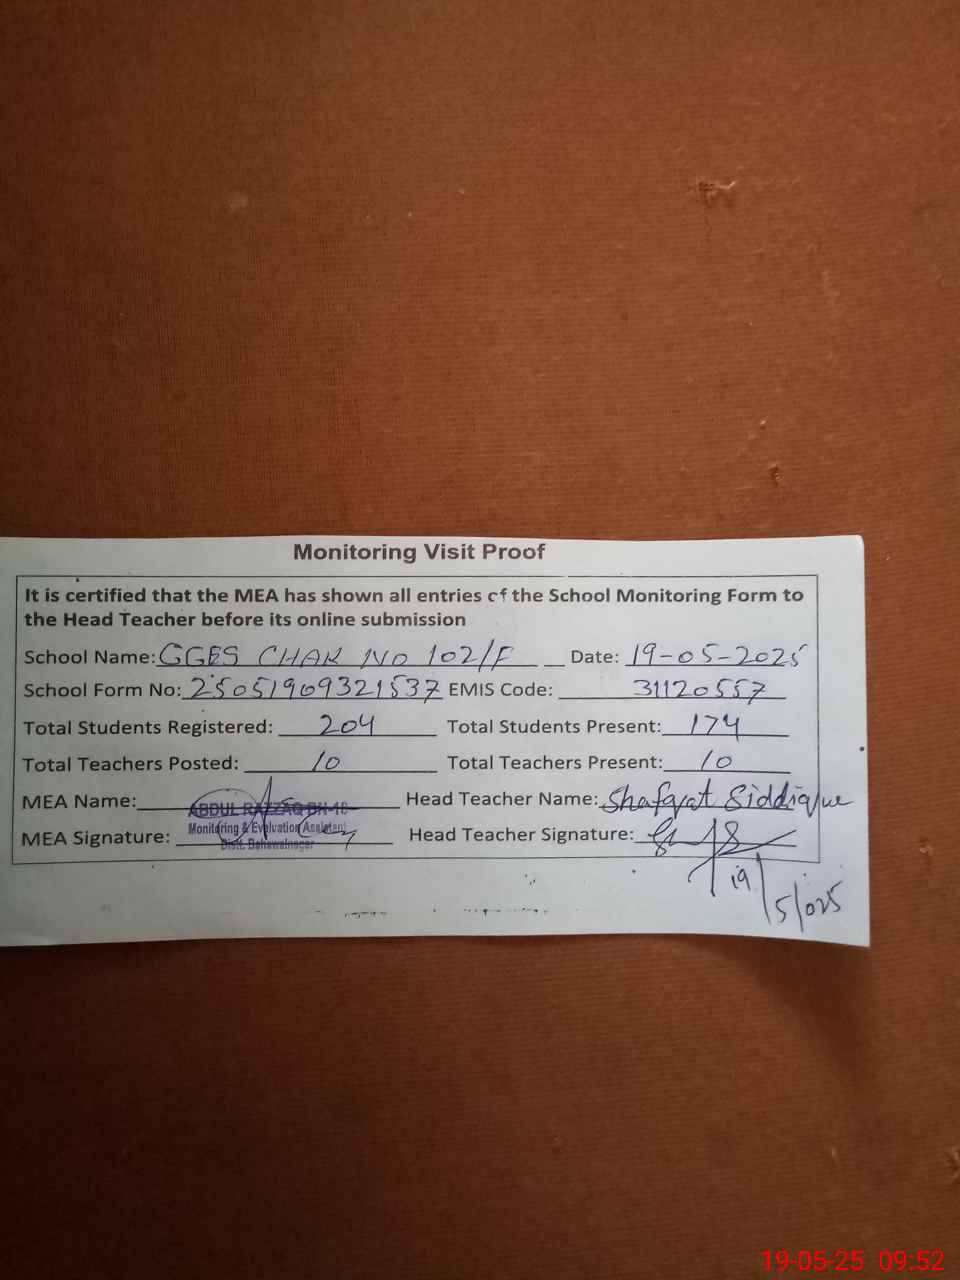 Monitoring Visit Proof
It is certified that the MEA has shown all entries of the School Monitoring Form to
the Head Teacher before its online submission
School Name: GGES CHAK NO 102/F Date: 19-05-2025
School Form No: 25051909321537 EMIS Code: 31120557
Total Students Registered: 204 Total Students Present: 174
Total Teachers Posted: 10 Total Teachers Present: 10
MEA Name: ABDUL RAZZAQ BN-18 Head Teacher Name: Shafqat Siddique
Monitoring & Evaluation Assistant
MEA Signature: Head Teacher Signature:
Distt. Bahawalnagar
19/5/025
19-05-25 09:52